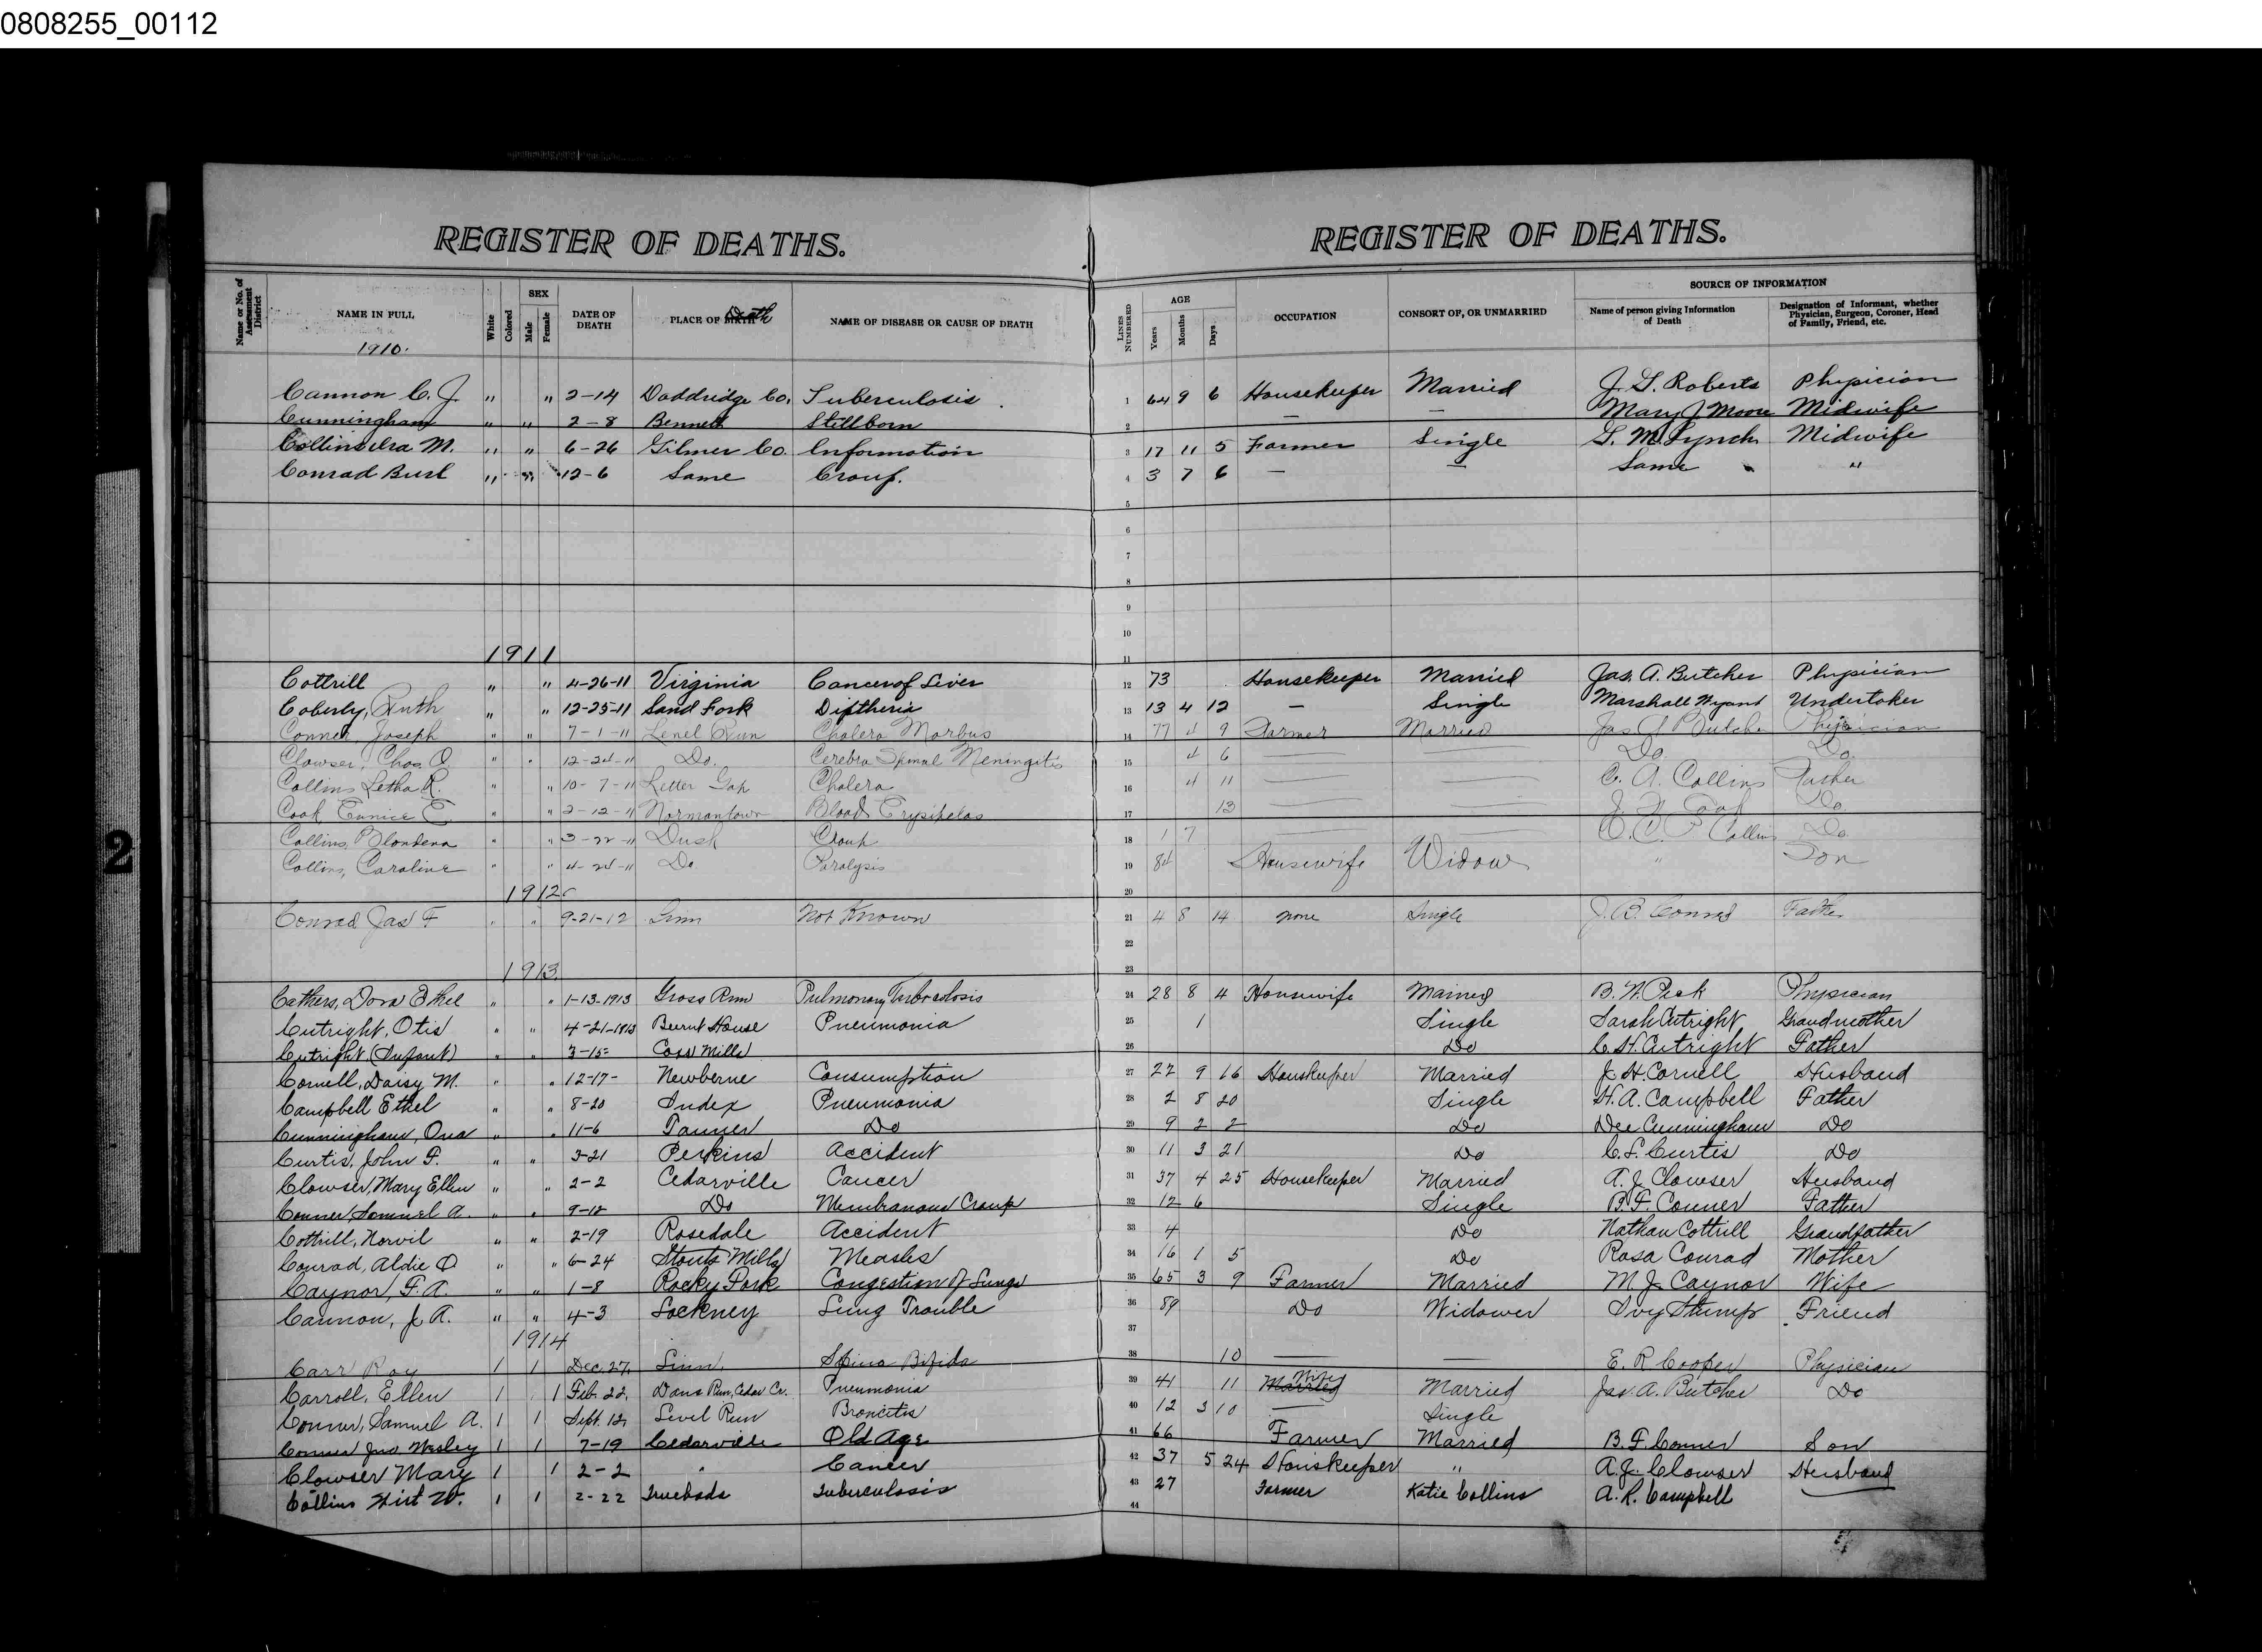 0808255_00112
REGISTER OF DEATHS. REGISTER OF DEATHS.
Name or No. of Assessment District
NAME IN FULL
1910.
White
Colored
SEX
Male
Female
DATE OF DEATH
PLACE OF BIRTH Death
NAME OF DISEASE OR CAUSE OF DEATH
LINES NUMBERED
AGE
Years
Months
Days
OCCUPATION
CONSORT OF, OR UNMARRIED
SOURCE OF INFORMATION
Name of person giving Information of Death
Designation of Informant, whether Physician, Surgeon, Coroner, Head of Family, Friend, etc.
Cannon C. J. " " 2-14 Doddridge Co. Tuberculosis. 1 64 9 6 Housekeeper Married Roberts Physician
Cunningham " " 2-8 Bennett Stillborn 2 — — Mary J Moore Midwife
Collins Ira M. " " 6-26 Gilmer Co. Information 3 17 11 5 Farmer Single Lynch Midwife
Conrad Burl " " 12-6 Same Croup. 4 3 7 6 — — Same "
5
6
7
8
9
10
1911 11
Cottrill " " 4-26-11 Virginia Cancer of Liver 12 73 Housekeeper Married Jas. A. Butcher Physician
Coberly, Ruth " " 12-25-11 Sand Fork Diptheria 13 13 4 12 — Single Marshall Wyant Undertaker
Conner, Joseph " " 7-1-11 Lenel Run Cholera Morbus 14 77 4 9 Farmer Married Jas A Butcher Physician
Clowser, Chas. O. " " 12-24-11 Do. Cerebra Spinal Meningitis 15 4 6 — — Do. Do.
Collins Letha R. " " 10-7-11 Letter Gap Cholera 16 4 11 — — C. A. Collins Father
Cook, Eunice E " " 2-12-11 Normantown Blood Erysipelas 17 13 — — Do.
Collins, Blondena " " 3-22-11 Dusk Croup 18 1 7 — — Collins Do.
Collins, Caroline " " 4-24-11 Do Paralysis 19 84 Housewife Widow " Son
1912 20
Conrad Jas F " " 9-21-12 Linn Not Known 21 4 8 14 none Single J. B. Conrad Father
22
1913 23
Cathers, Dora Ethel " " 1-13-1913 Gross Run Pulmonary Tuberculosis 24 28 8 4 Housewife Married B. W. Peck Physician
Cutright, Otis " " 4-21-1913 Burnt House Pneumonia 25 1 Single Sarah Cutright Grandmother
Cutright, (Infant) " " 3-15- Coxs Mills 26 Do C. H. Cutright Father
Cornell, Daisy M. " " 12-17- Newberne Consumption 27 22 9 16 Houskeeper Married J. H. Cornell Husband
Campbell Ethel " " 8-20 Index Pneumonia 28 2 8 20 Single H. A. Campbell Father
Cunningham, Ona " " 11-6 Tanner Do 29 9 2 2 Do Dee Cunningham Do
Curtis, John F. " " 3-21 Perkins Accident 30 11 3 21 Do C. L. Curtis Do
Clowser, Mary Ellen " " 2-2 Cedarville Cancer 31 37 4 25 Housekeeper Married A. J. Clowser Husband
Conner, Samuel A. " " 9-12 Do Membranous Croup 32 12 6 Single B. F. Conner Father
Cottrill, Norvil " " 2-19 Rosedale Accident 33 4 Do Nathan Cottrill Grandfather
Conrad, Aldie O " " 6-24 Stouts Mills Measles 34 16 1 5 Do Rosa Conrad Mother
Caynor, F. A. " " 1-8 Rocky Fork Congestion of Lungs 35 65 3 9 Farmer Married M. J. Caynor Wife
Cannon, J. A. " " 4-3 Lockney Lung Trouble 36 89 Do Widower Ivy Stump Friend
1914 37
Carr Roy 1 1 Dec. 27, Linn. Spina Bifida 38 10 — — E. R Cooper Physician
Carroll, Ellen 1 1 Feb. 22, Davis Run, Cedar Cr. Pneumonia 39 41 11 Married Married Jas. A. Butcher Do
Conner, Samuel A. 1 1 Sept. 12, Level Run Broncitis 40 12 3 10 — Single
Conner Jno Wesley 1 1 7-19 Cedarville Old Age 41 66 Farmer Married B. F. Conner Son
Clowser Mary 1 1 2-2 " Cancer 42 37 5 24 Houskeeper " A. J. Clowser Husband
Collins Hirt W. 1 1 2-22 Truebada Tuberculosis 43 27 Farmer Katie Collins A. R. Campbell
44
2